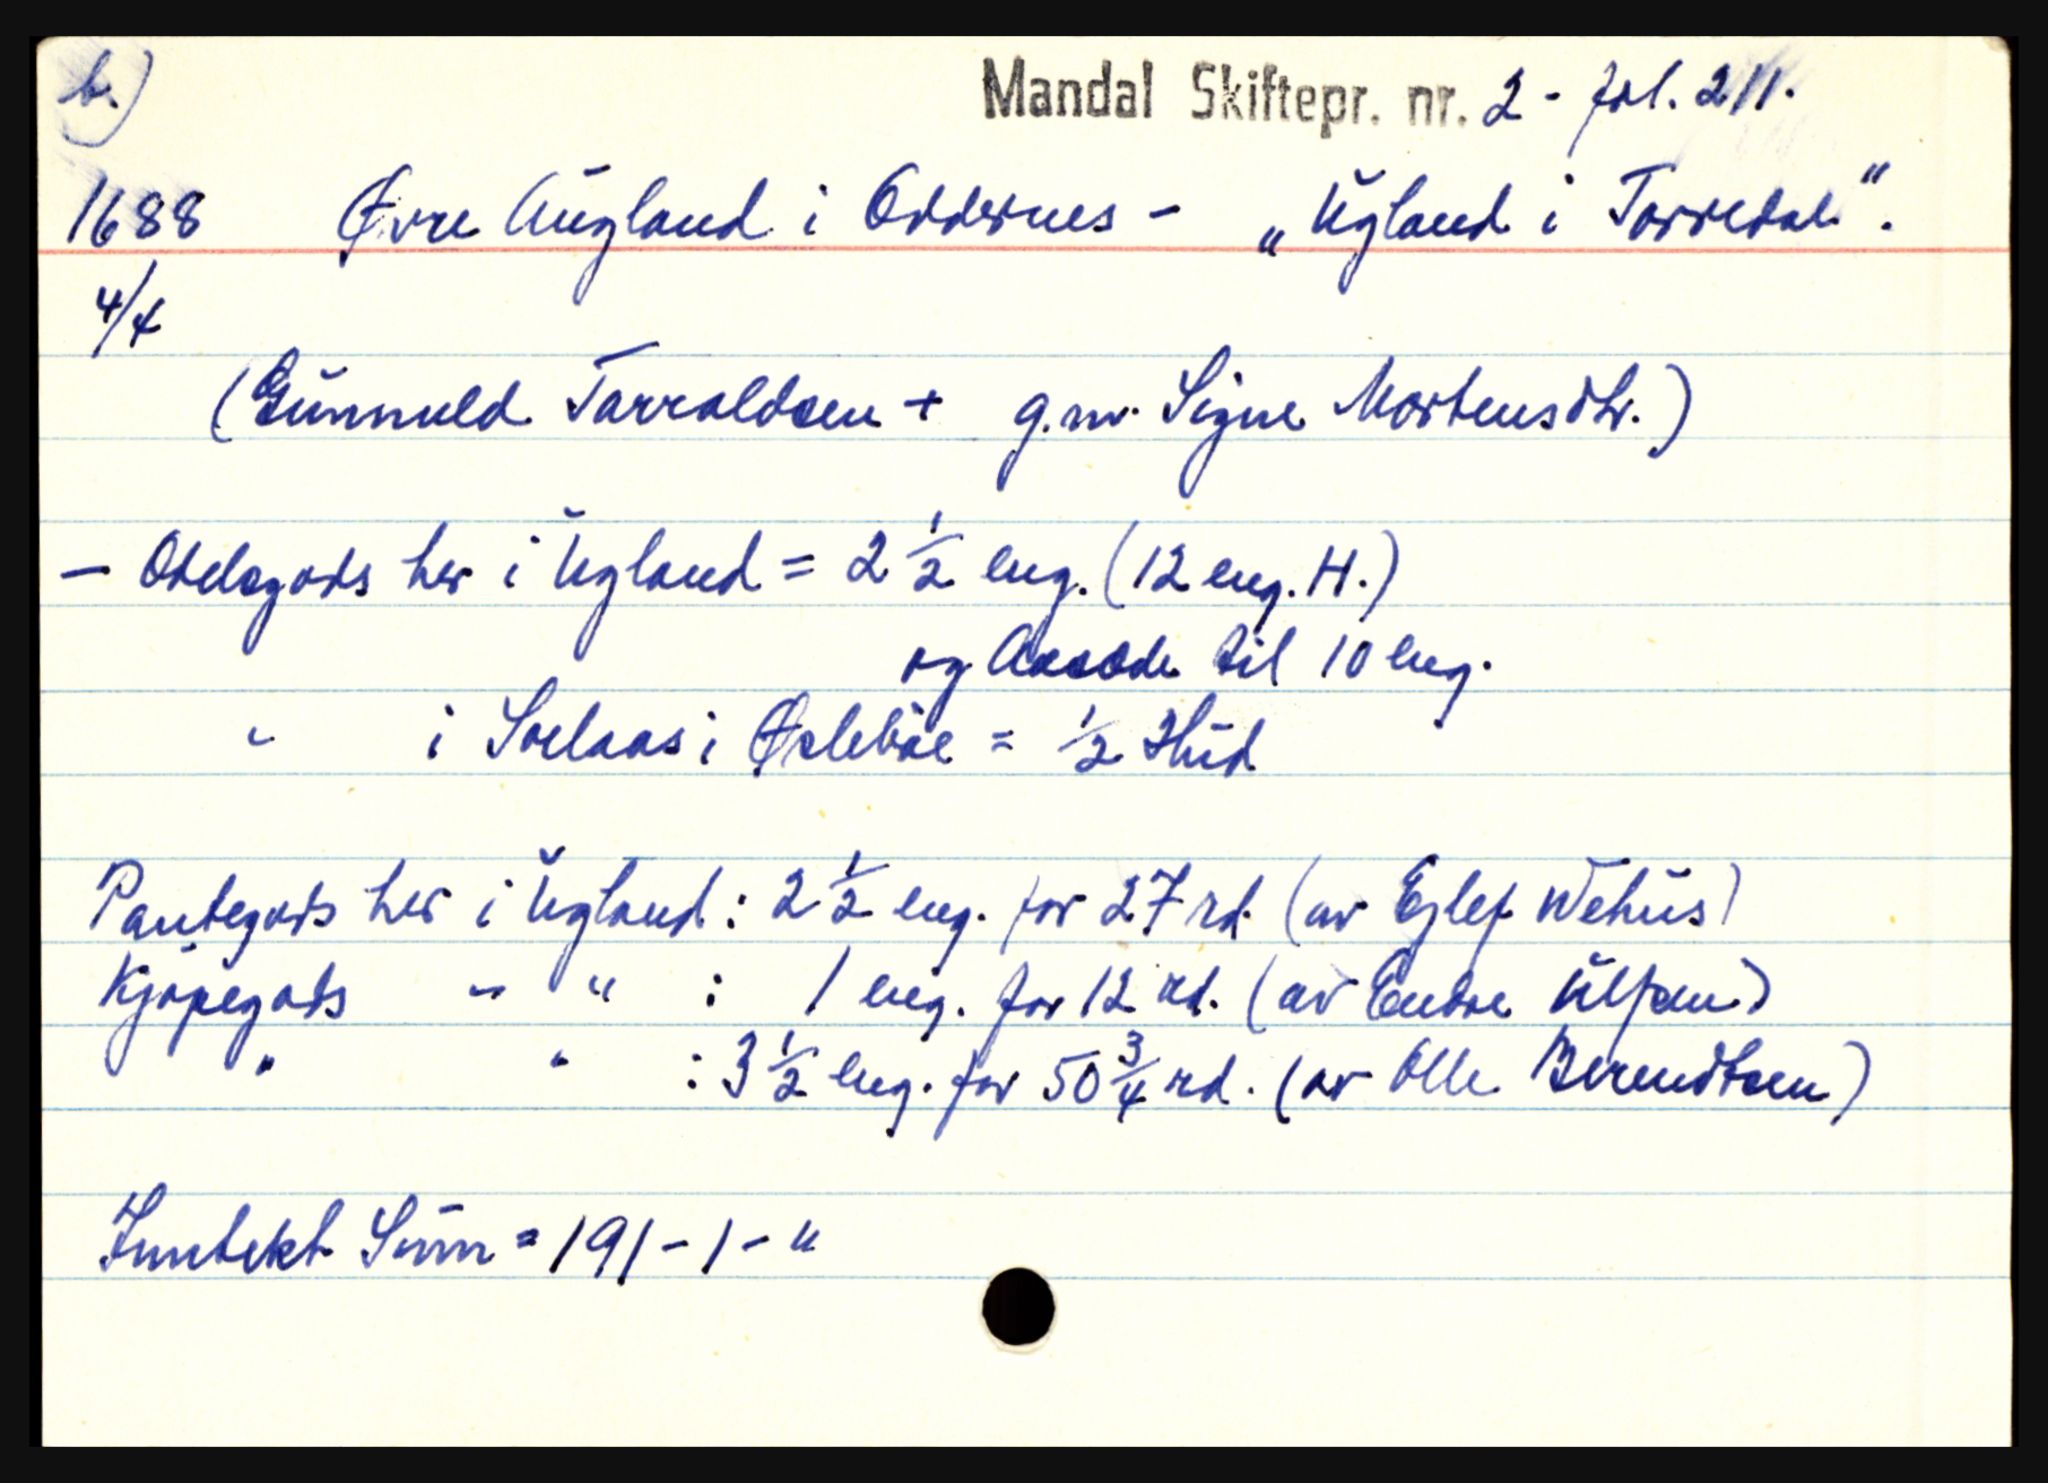 b.)
Mandal Skiftepr. nr. 2 - fol. 211.
1688 Øvre Augland i Oddernes - „Ugland i Torredal“.
4/4
(Gunnuld Tarraldsen + g.m. Signe Mortensdtr.)
- Odelsgods her i Ugland = 2 1/2 eng. (12 eng. H.)
og Aasæde til 10 eng.
" i Soelaas i Øslebøe = 1/2 Hud
Pantegods her i Ugland : 2 1/2 eng. for 27 rd. (av Ejlef Wehus)
Kjöpegods " " : 1 eng. for 12 rd. (av Endre Ulfsen)
" " : 3 1/2 eng. for 50 3/4 rd. (av Olle Berendtsen)
Inntekt Sum = 191 - 1 - "